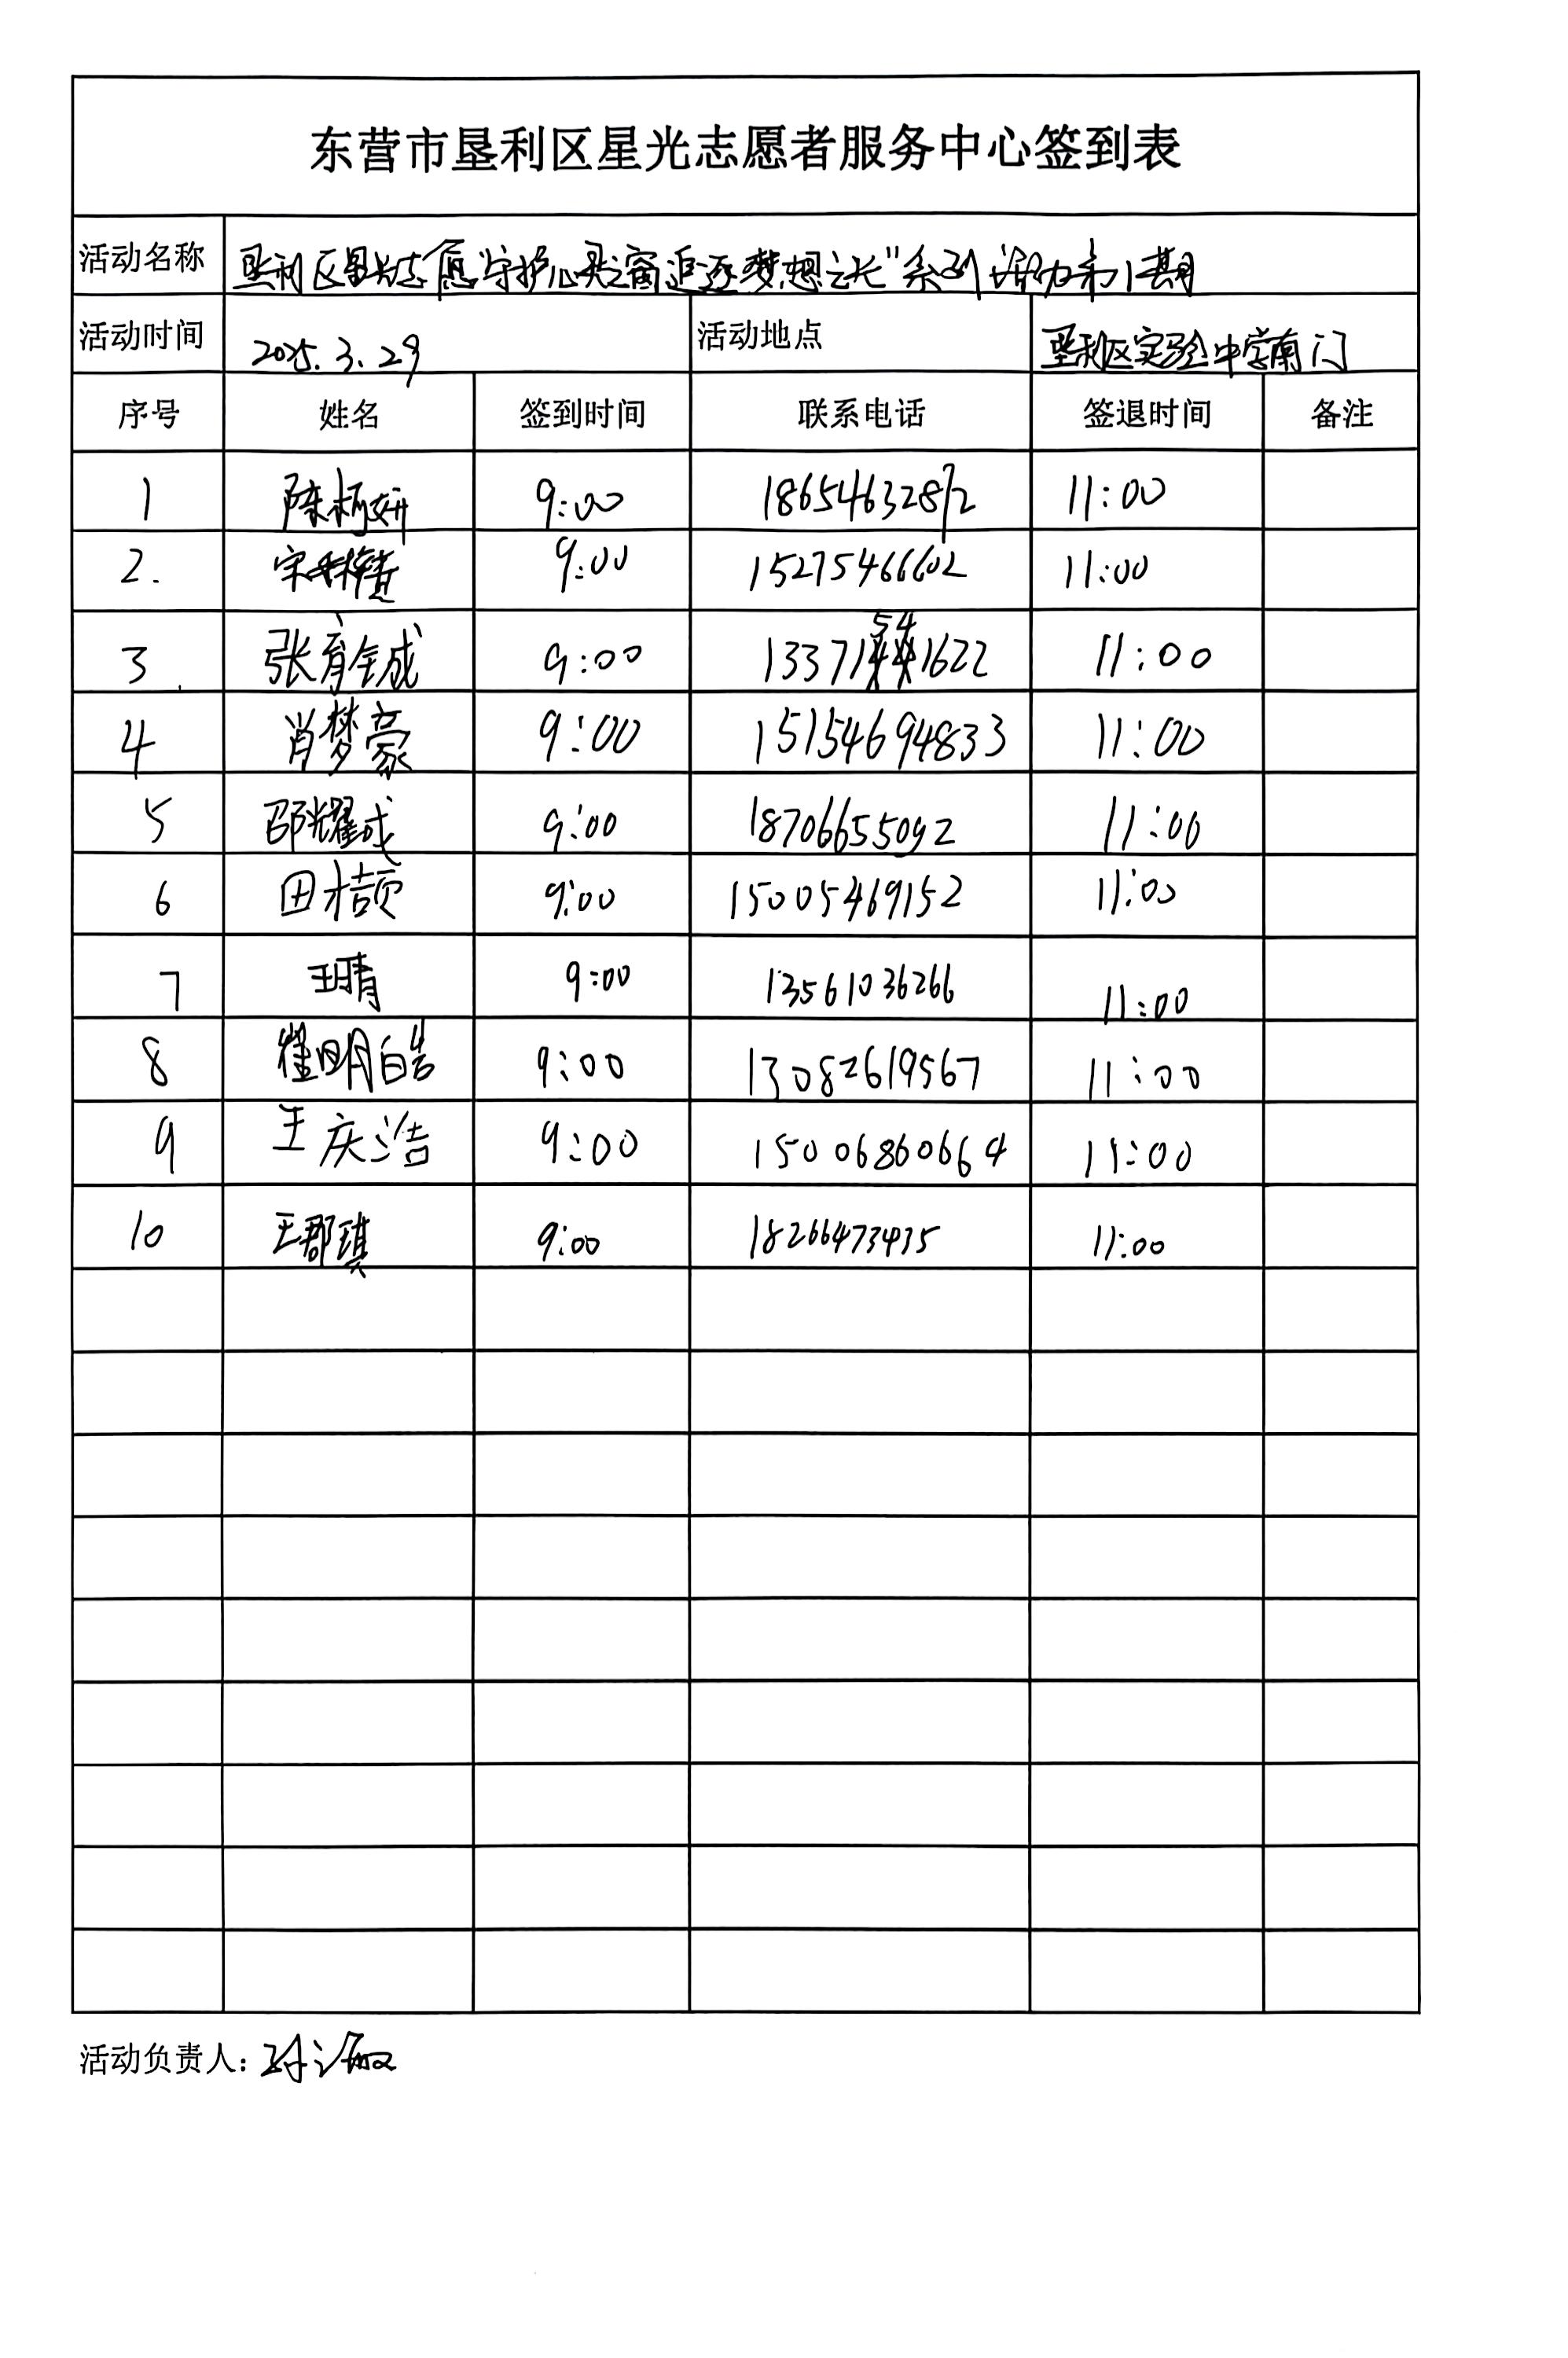 东营市垦利区星光志愿者服务中心签到表
活动名称 垦利区星光志愿"守护心灵之窗追逐梦想之光"系列活动第1期
活动时间 2025.3.29 活动地点 垦利区实验中学南门
序号 姓名 签到时间 联系电话 签退时间 备注
1 陈柯妍 9:00 18654632812 11:00
2. 宋 9:00 15275466602 11:00
3 张育铖 9:00 13371541622 11:00
4 肖梦豪 9:00 15154694833 11:00
5 邵耀成 9:00 18706655092 11:00
6 田桔页 9:00 15005469152 11:00
7 王晴 9:00 13561036266 11:00
8 翟明皓 9:00 13082619567 11:00
9 王庆浩 9:00 15006860664 11:00
10 王郡琪 9:00 18266473435 11:00
活动负责人：